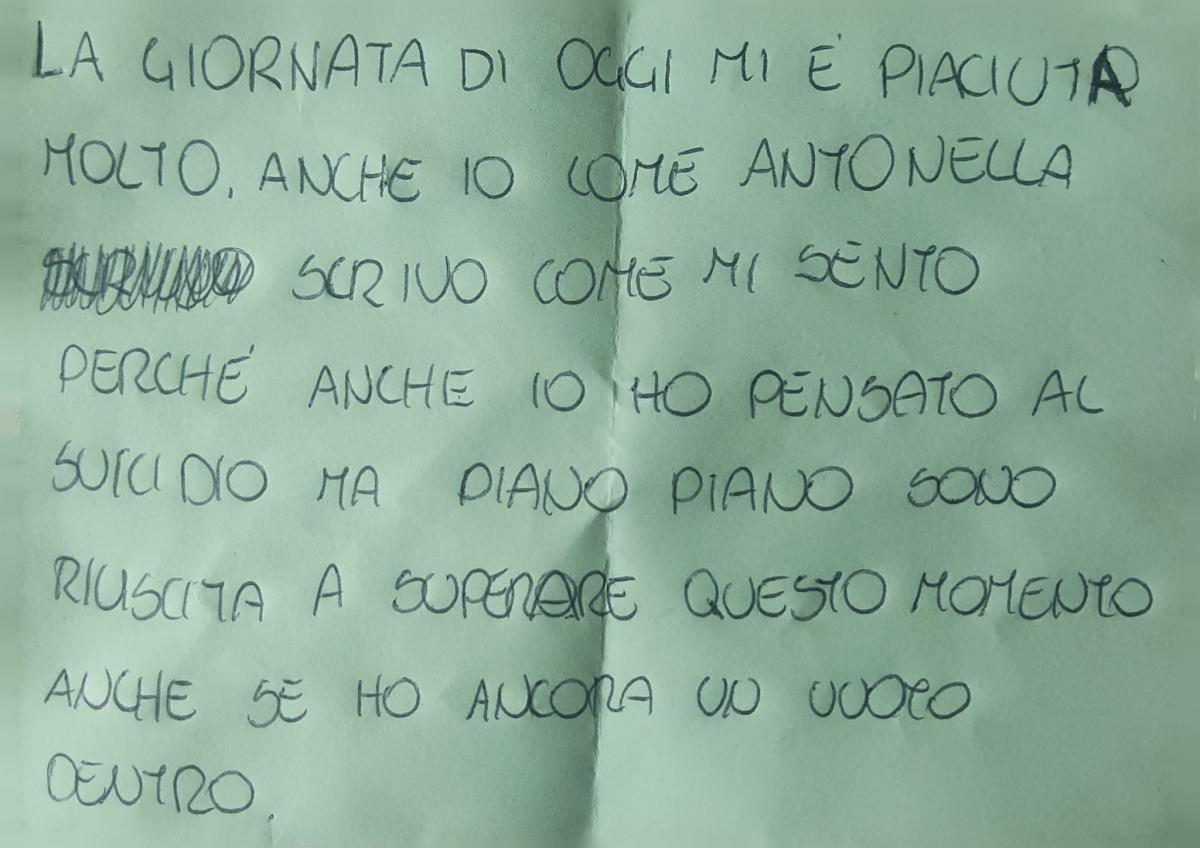 LA GIORNATA DI OGGI MI É PIACIUTA
MOLTO. ANCHE IO COME ANTONELLA
SCRIVO COME MI SENTO
PERCHÉ ANCHE IO HO PENSATO AL
SUICIDIO MA PIANO PIANO SONO
RIUSCITA A SUPERARE QUESTO MOMENTO
ANCHE SE HO ANCORA UN VUOTO
DENTRO.